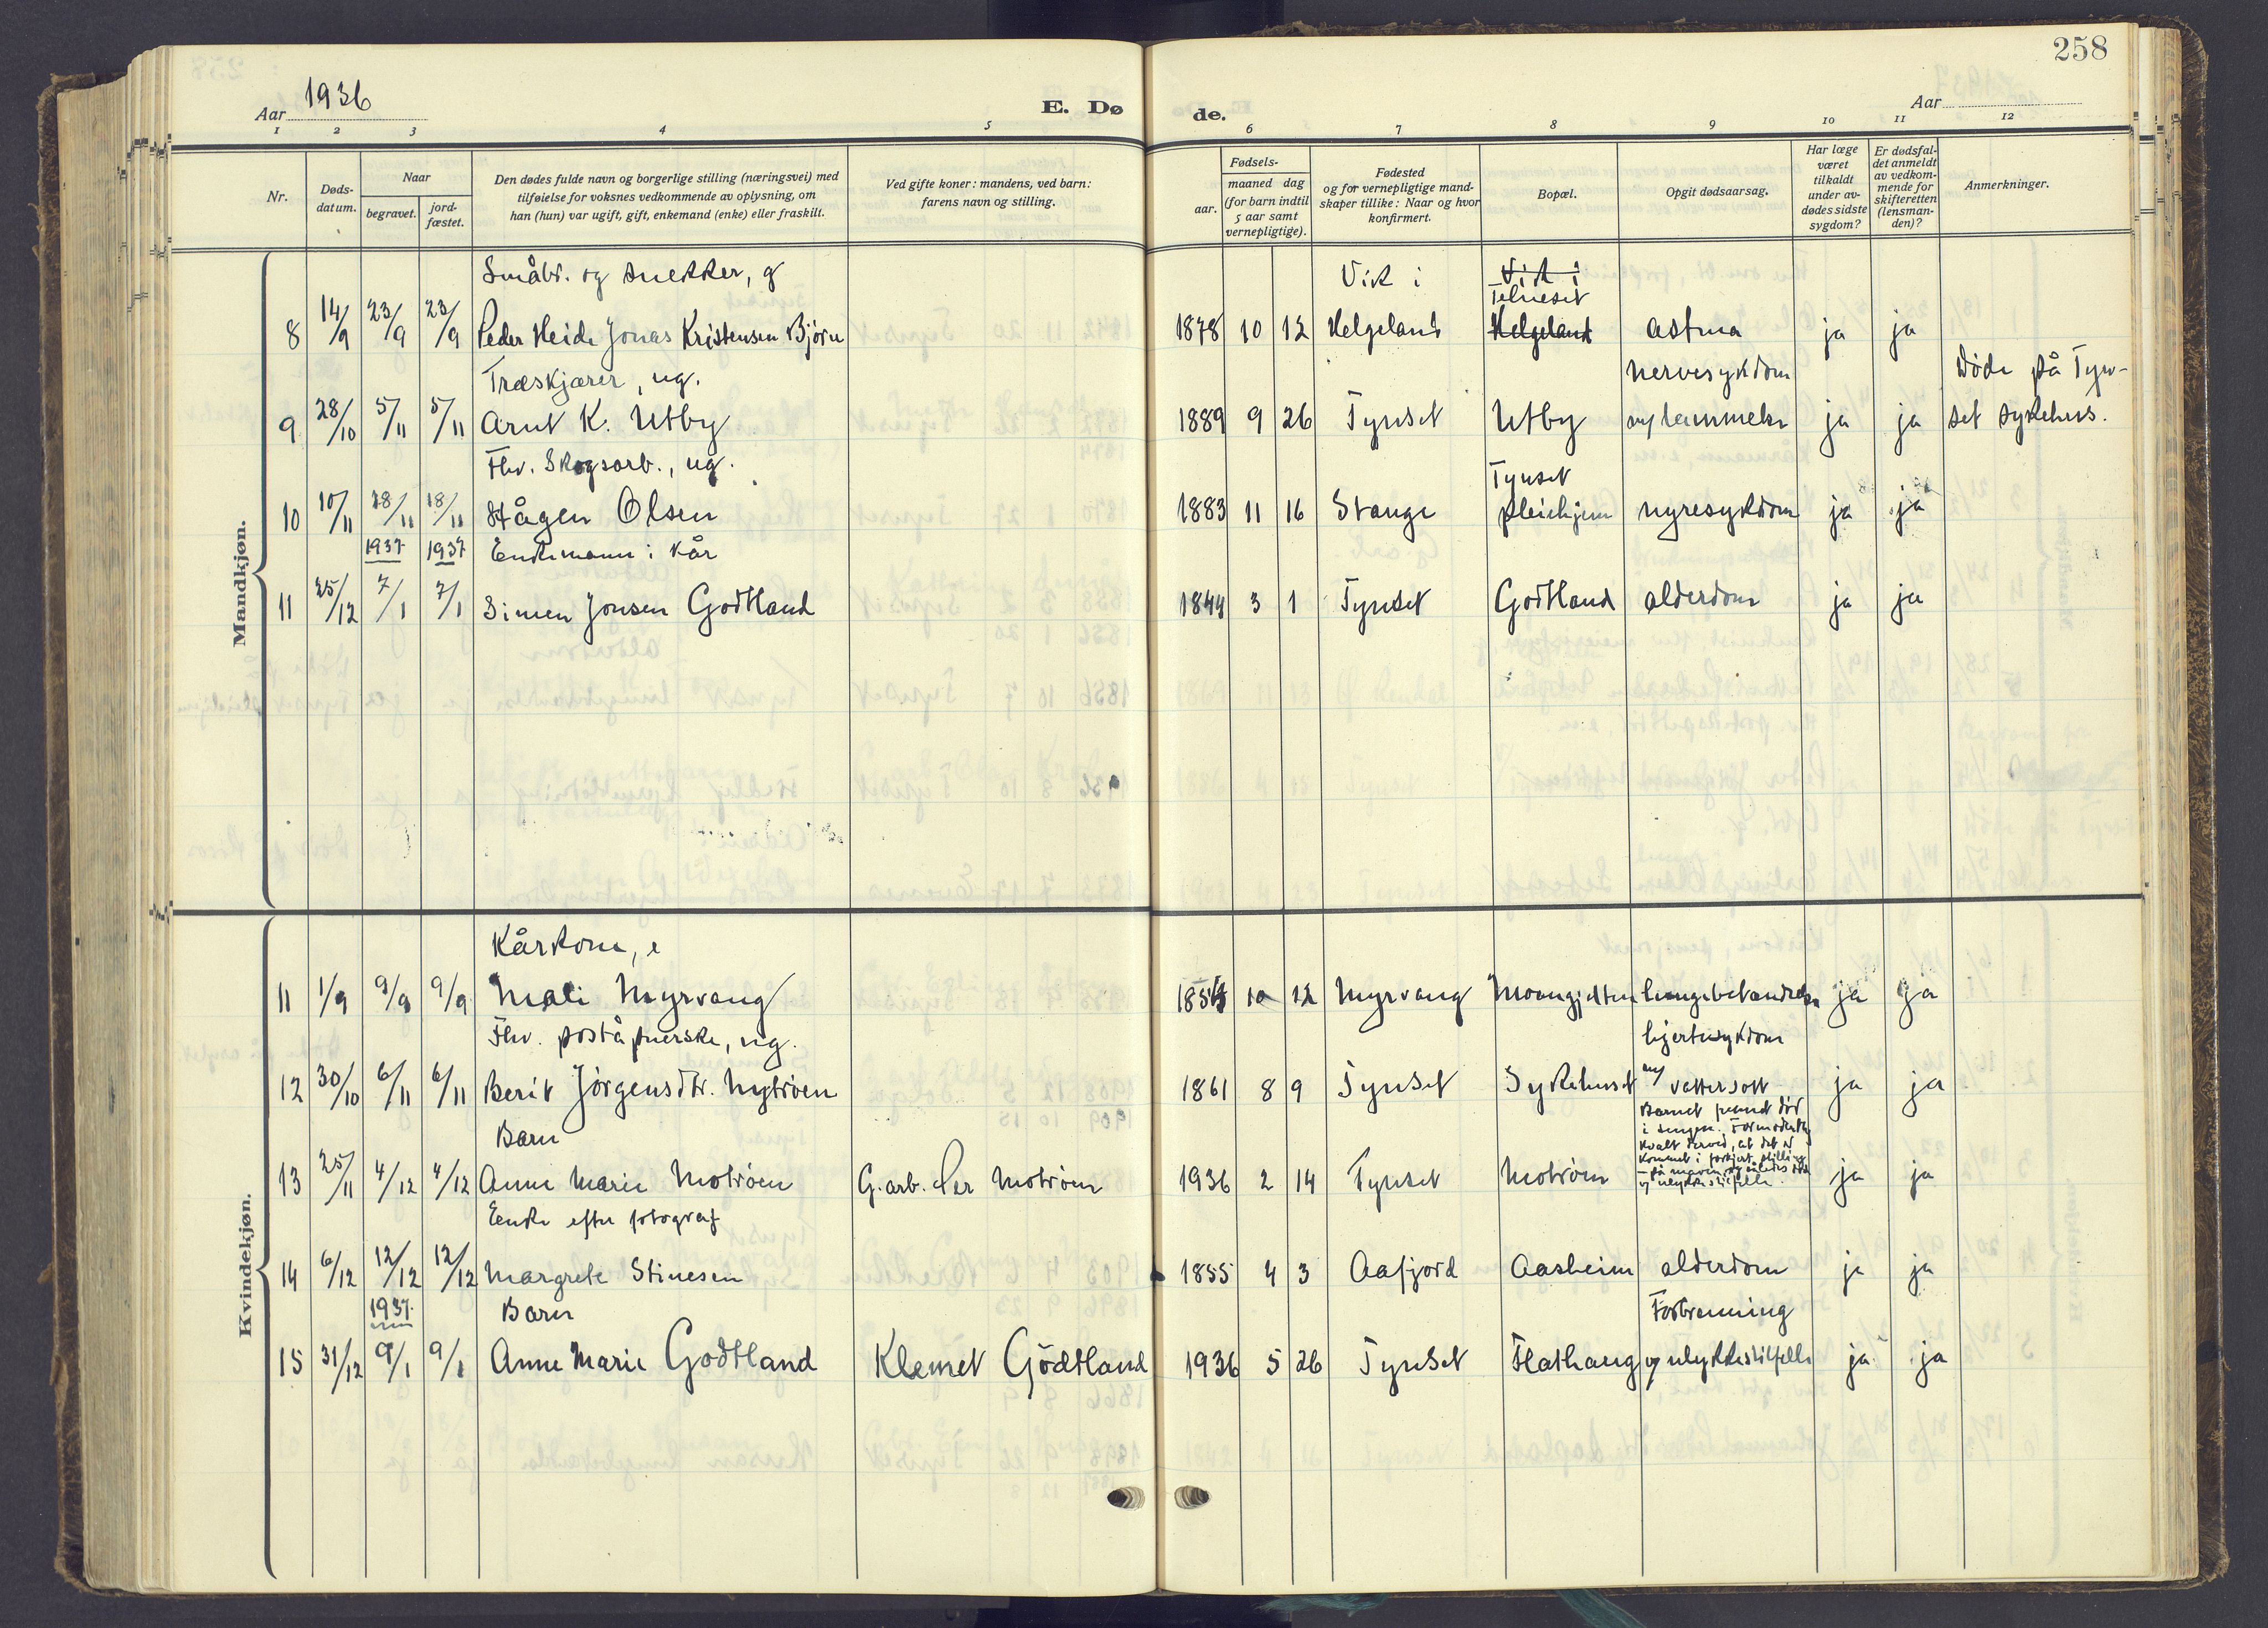 258
Aar 1936
E. Dø
de.
Aar
1 2 3 4 5 6 7 8 9 10 11 12
Nr.
Døds-
datum.
Naar
begravet.
jord-
fæstet.
Den dødes fulde navn og borgerlige stilling (næringsvei) med
tilføielse for voksnes vedkommende av oplysning, om
han (hun) var ugift, gift, enkemand (enke) eller fraskilt.
Ved gifte koner: mandens, ved barn:
farens navn og stilling.
Fødsels-
aar.
maaned dag
(for barn indtil
5 aar samt
vernepligtige).
Fødested
og for vernepligtige mand-
skaper tillike: Naar og hvor
konfirmert.
Bopæl.
Opgit dødsaarsag.
Har læge
været
tilkaldt
under av-
dødes sidste
sygdom?
Er dødsfal-
det anmeldt
av vedkom-
mende for
skifteretten
(lensman-
den)?
Anmerkninger.
Mandkjøn.
Småbr. og snekker, g Vik i Vik i
Telneset
8 14/9 23/9 23/9 Peder Heide Jonas Kristensen Bjørn 1878 10 12 Helgeland Helgeland astma ja ja
Træskjærer, ug. nervesykdom Døde på Tyn-
9 28/10 5/11 5/11 Arnt K. Utby 1889 9 26 Tynset Utby m/ lammelse ja ja set sykehus.
Fhv. Skogsarb., ug. Tynset
10 10/11 18/11 18/11 Hågen Olsen 1883 11 16 Stange pleiehjem nyresykdom ja ja
1937 1937 Enkemann i kår
11 25/12 7/1 7/1 Simen Jonsen Godtland 1844 3 1 Tynset Godtland alderdom ja ja
Kvindekjøn.
Kårkone, e
11 1/9 9/9 9/9 Mali Myrvang 10 12 Myrvang Moangjelten lungebetendelse ja ja
Fhv. poståpnerske, ug. hjertesykdom
12 30/10 6/11 6/11 Berit Jørgensdtr. Nytrøen 1861 8 9 Tynset Sykehuset m/ vattersott ja ja
Barn Barnet funnet død
i sengen. Formodentlig
kvalt derved, at det er
kommet i forkjert stilling
13 25/11 4/12 4/12 Anne Marie Motrøen G.arb. Per Motrøen 1936 2 14 Tynset Motrøen - på maven og således død
v/ ulykkestilfelle. ja ja
Enke efter fotograf
14 6/12 12/12 12/12 Margrete Stinesen 1855 4 3 Aafjord Aasheim alderdom ja ja
1937 Barn Forbrenning
15 31/12 9/1 9/1 Anne Marie Godtland Klemet Godtland 1936 5 26 Tynset Flathaug v/ ulykkestilfelle ja ja